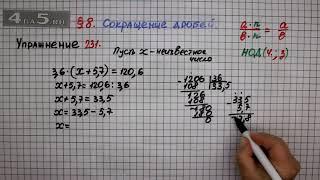 4 на 5.ru
§8. Сокращение дробей.
Упражнение 231.
Пусть x - неизвестное число
a·n / b·n = a / b
НОД(4; 3)
3,6·(x+5,7)=120,6
x+5,7=120,6:3,6
x+5,7=33,5
x=33,5-5,7
x=
1206 |36
108 33,5
126
108
180
180
0
-33,5
5,7
7,8